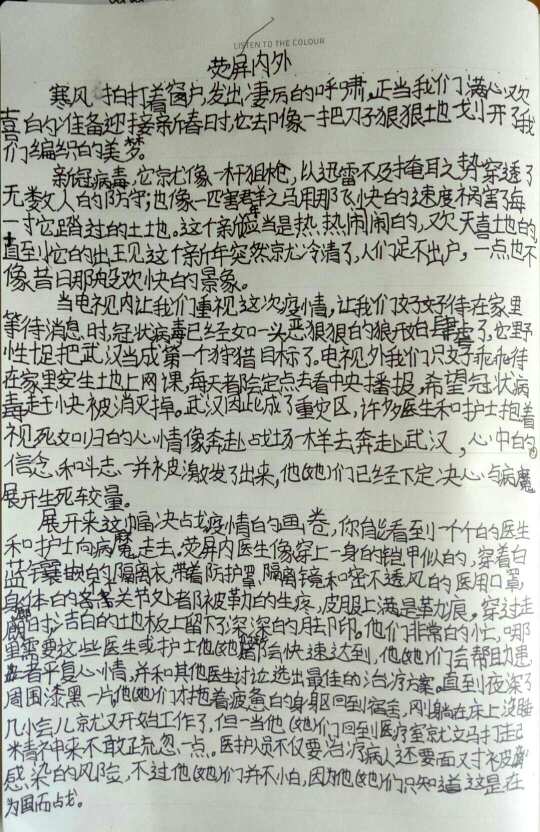 LISTEN TO THE COLOUR
荧屏内外
寒风拍打着窗户,发出凄厉的呼啸,正当我们满心欢
喜的准备迎接新春日时,它却像一把刀子狠狠地划开了我
们编织的美梦。
新冠病毒,它就像一杆狙枪,以迅雷不及掩耳之势穿透了
无数人的防守;也像一匹害群之马用那飞快的速度祸害每
一寸它踏过的土地。这个新年应当是热热闹闹的,欢天喜地的,
直到它的出现这个新年突然就冷清了,人们足不出户,一点也不
像昔日那般欢快的景象。
当电视内让我们重视这次疫情,让我们好好待在家里
等待消息时,冠状病毒已经如一头恶狠狠的狼开始肆虐了,它野
性十足把武汉当成第一个狩猎目标了。电视外我们只好乖乖待
在家里安生地上网课,每天都会定点去看中央播报,希望冠状病
毒赶快被消灭掉。武汉因此成了重灾区,许多医生和护士抱着
视死如归的心情像奔赴战场一样去奔赴武汉,心中的
信念和斗志一并被激发了出来,他(她)们已经下定决心与病魔
展开生死较量。
展开来这幅决战疫情的画卷,你能看到一个个的医生
和护士向病魔走去。荧屏内医生像穿上一身的铠甲似的,穿着白
蓝镶嵌的隔离衣,带着防护罩,隔离镜和密不透风的医用口罩,
身体的各各关节处都被勒的生疼,皮服上满是勒痕。穿过走
廊的洁白的土地板上留下了深深的脚印。他们非常的忙,哪
里需要这些医生或护士他(她)们都会快速达到,他(她)们会帮助患
者平复心情,并和其他医生讨论选出最佳的治疗方案。直到夜深了
周围漆黑一片,他(她)们才拖着疲惫的身躯回到宿舍,刚躺在床上没睡
几小会儿就又开始工作了,但一当他(她)们回到医疗室就立马打起
精神来不敢疏忽一点。医护人员不仅要治疗病人还要面对被病毒
感染的风险,不过他(她)们并不怕,因为他(她)们只知道这是在
为国而战。